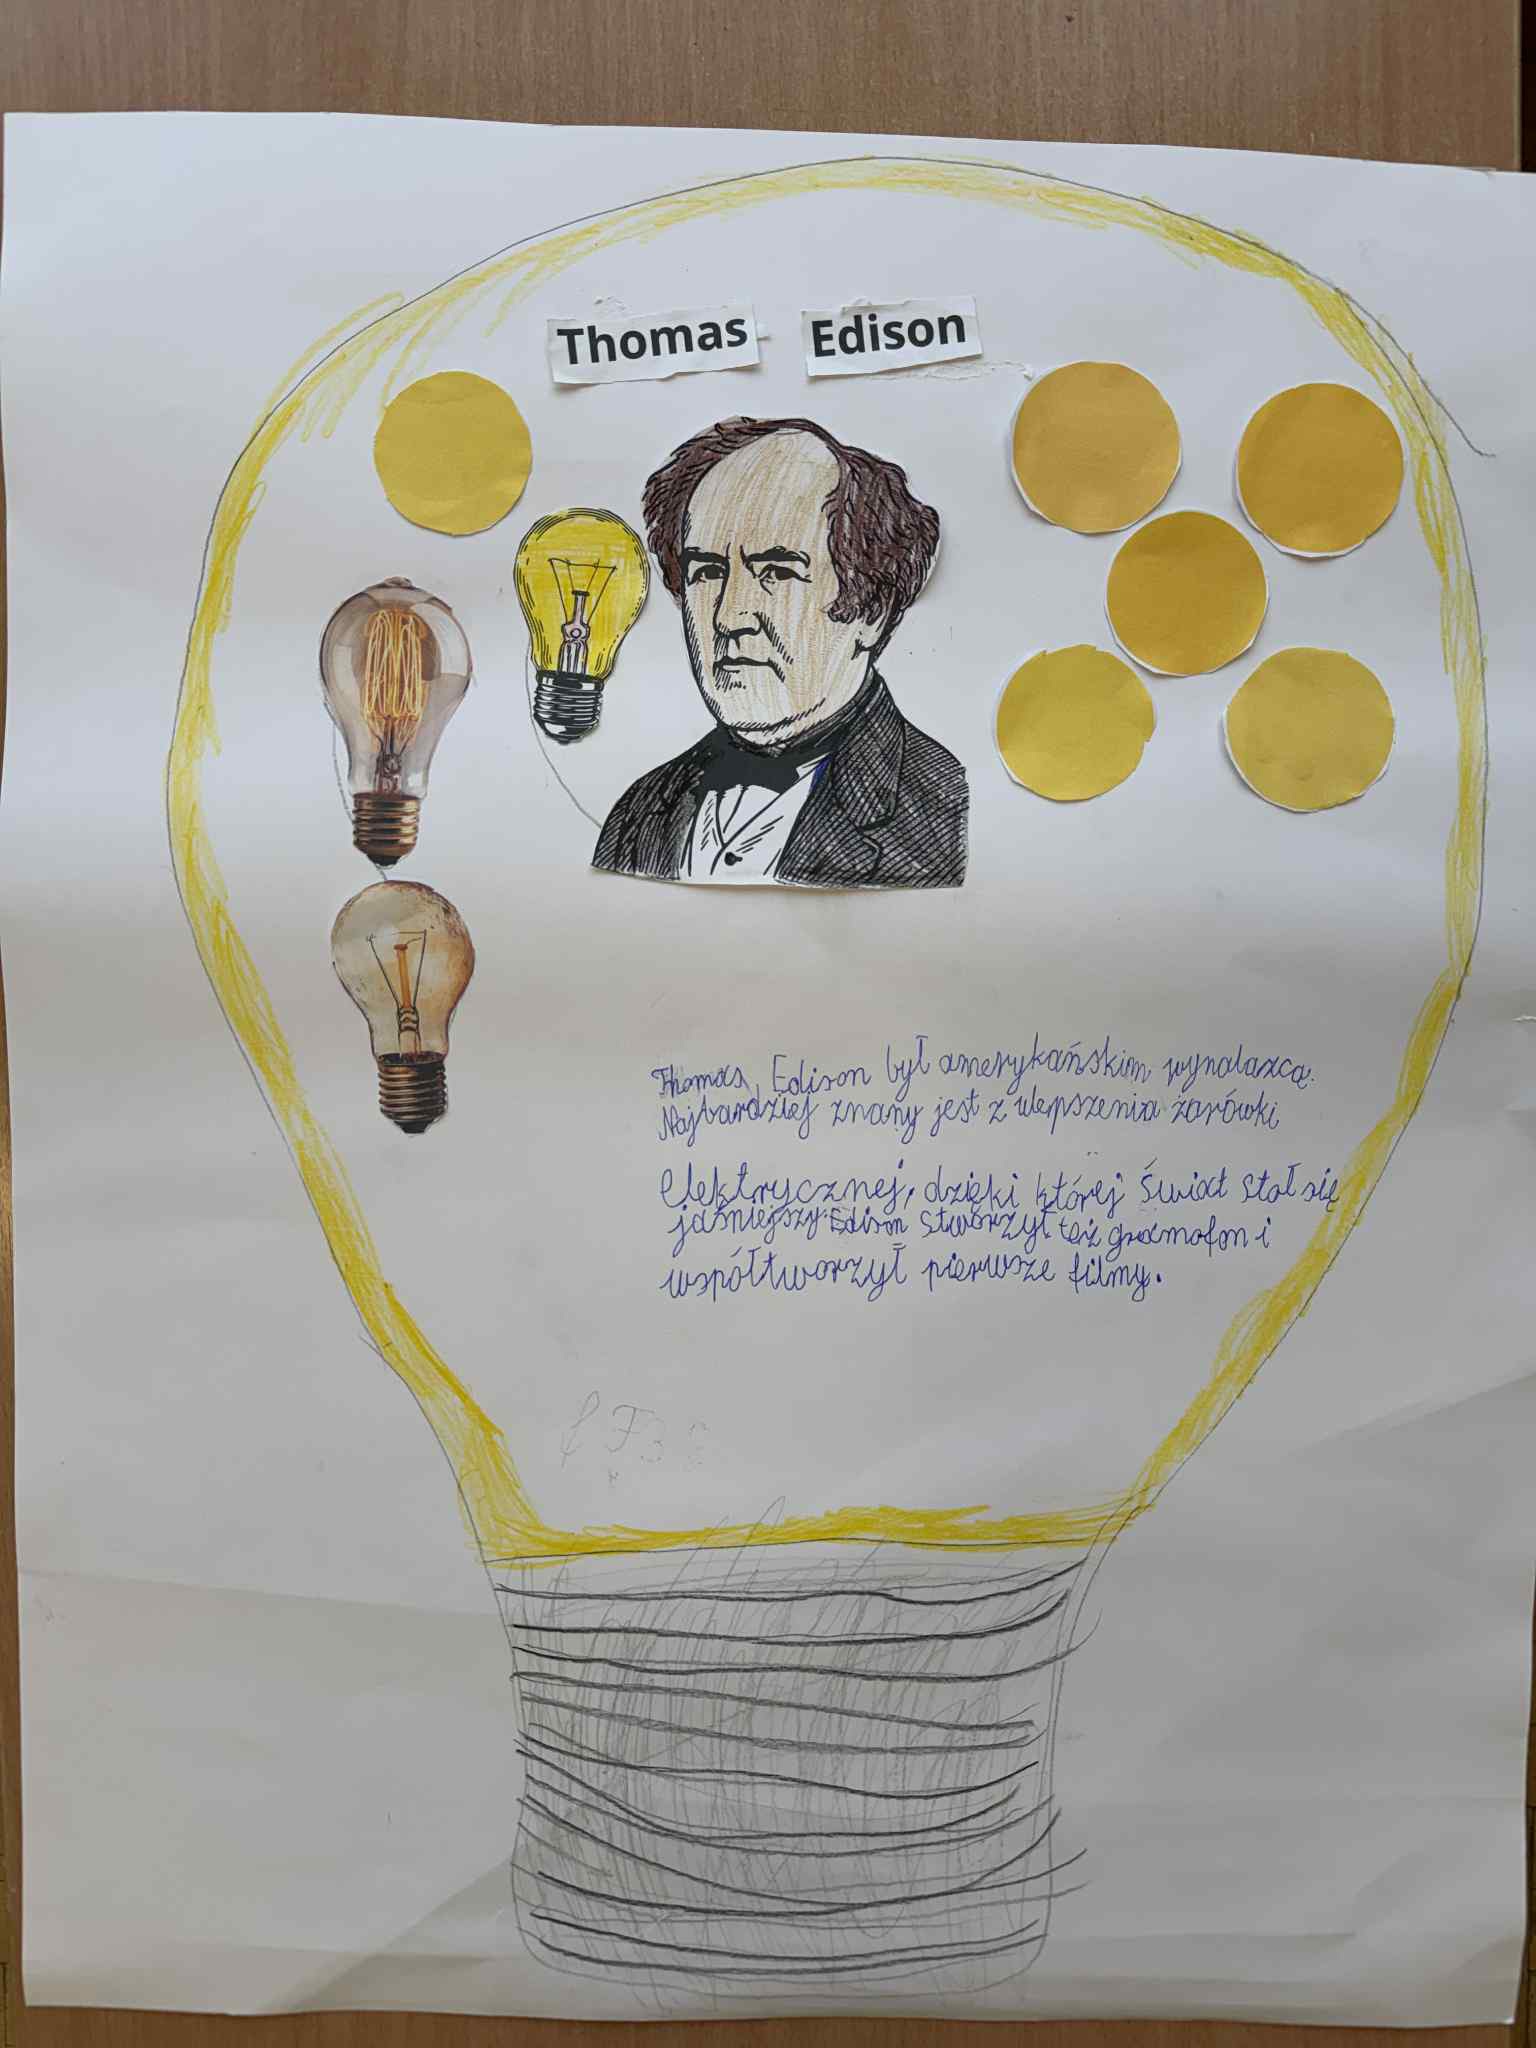 Thomas Edison
Thomas Edison był amerykańskim wynalazcą.
Najbardziej znany jest z ulepszenia żarówki
elektrycznej, dzięki której Świat stał się
jaśniejszy. Edison stworzył też gramofon i
współtworzył pierwsze filmy.